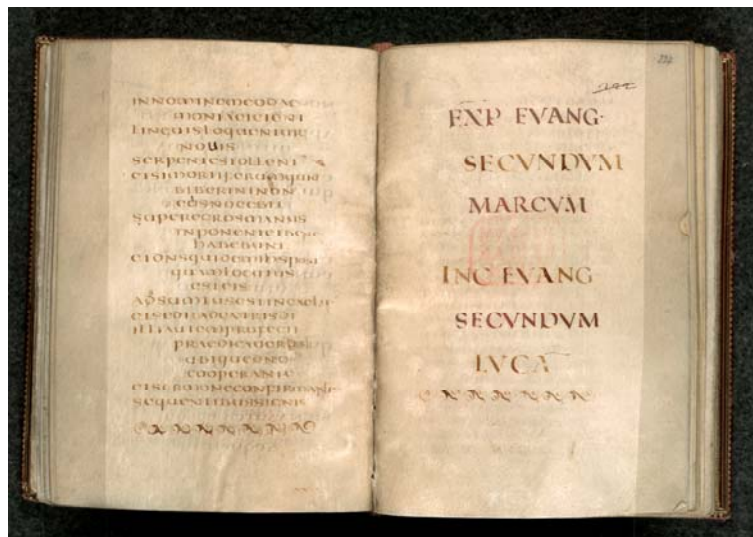 IN NOMINE MEO DAE
MONIA EICIENT
LINGUIS LOQUENTUR
NOUIS
SERPENTES TOLLENT
ET SI MORTIFERUM QUID
BIBERINT NON
EOS NOCEBIT
SUPER EGROS MANUS
INPONENT ET BENE
HABEBUNT
ET DNS QUIDEM IHS POST
QUAM LOCUTUS
EST EIS
ADSUMTUS EST IN CAELIS
ET SEDIT AD DEXTRIS DI
ILLI AUTEM PROFECTI
PRAEDICAUER
UBIQUE DNO
COOPERANTE
ET SERMONE CONFIRMANTE
SEQUENTIBUS SIGNIS
EXP EVANG·
SECVNDVM
MARCVM
INC EVANG
SECVNDVM
LVCA